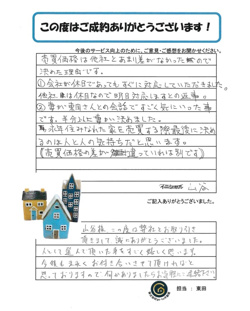 この度はご成約ありがとうございます！
今後のサービス向上のために、ご意見・ご感想をお聞かせください。
売買価格は他社とあまり差がなかったので
決めた理由です。
①会社が休日であってもすぐに対応していただきました。
他社は休日なので明日対応しますとの返事。
②妻が東田さんとの会話ですごく気にいった事
です。半分以上妻が決めました。
長永年住みなれた家を売買する際最後に決め
るのは人と人の気持ちだと思います。
（売買価格の差が違っていれば別です）
山谷
ご記入ありがとうございました。
山谷様、この度は弊社とお取引き
頂きまして誠にありがとうございました。
人として選んで頂いた事をすごく嬉しく思います。
今後も末永くお付き合いさせて頂ければと
思っておりますので何かありましたらお気軽に連絡下さい。
担当：東田